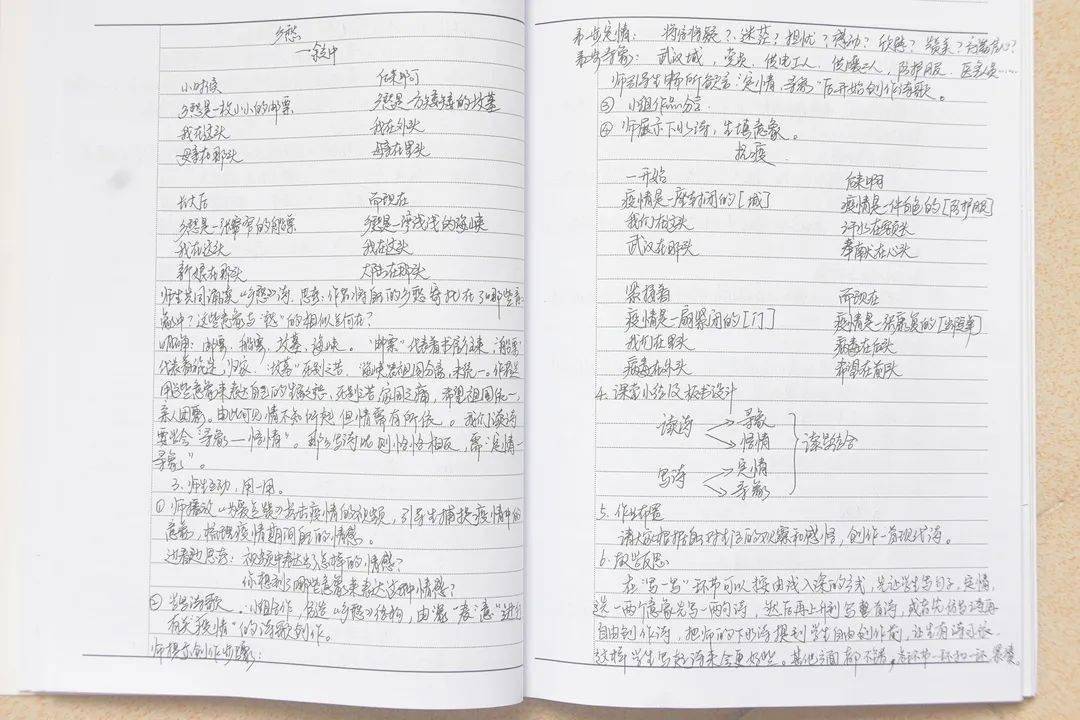 乡愁
—余光中
小时候 后来啊
乡愁是一枚小小的邮票 乡愁是一方矮矮的坟墓
我在这头 我在外头
母亲在那头 母亲在里头
长大后 而现在
乡愁是一张窄窄的船票 乡愁是一湾浅浅的海峡
我在这头 我在这头
新娘在那头 大陆在那头
师生共同诵读《乡愁》诗,思考:作者将自己的乡愁寄托在了哪些意
象中?这些意象与"愁"的相似点何在?
明确:邮票、船票、坟墓、海峡。"邮票"代表着书信往来,"船票"
代表着 归家,"坟墓" 死别之苦,"海峡" 祖国分离,未统一。作者是
用这些意象来表达自己的 乡愁,死别之苦,家国之痛,希望祖国统一,
亲人团聚。由此可见,情不知所起,但情寄有所依。我们读诗
要学会"寻象—悟情"。那么写诗 则恰恰相反,需"定情—
寻象"。
3、师生互动,用一用。
① 师播放《 》抗击疫情的视频,引导生捕捉疫情中的
意象,梳理疫情期间的情感。
边看边思考:视频中表达出了怎样的情感?
你想到了哪些意象来表达这种情感?
② 尝写诗歌。小组合作,仿造《乡愁》结构,由"象""意"进行
有关"疫情"的诗歌创作。
师提示创作步骤:
第一步定情:将信将疑?迷茫?担忧?感动?欣慰? ?充满信心?
第二步寻象:武汉城,党员,供电工人,供暖工人,防护服,医务人员……
师引导生将所散言"定情,寻象"后开始创作诗歌。
③ 小组作品分享。
④ 师展示下水诗,生填意象。
抗疫
一开始 后来啊
疫情是一座封闭的[城] 疫情是一件白色的[防护服]
我们在这头 汗水在额头
武汉在那头 奉献在心头
紧接着 而现在
疫情是一扇紧闭的[门] 疫情是一张康复的[出院单]
我们在里头 病毒在后头
病毒在外头 希望在前头
4、课堂小结及板书设计
读诗 寻象
悟情
读写结合
写诗 定情
寻象
5、作业布置
请大家根据自己对生活的观察和感悟,创作一首现代诗。
6、教学反思:
在"写一写"环节可以按由浅入深的方式,先让学生写句子,定情,
选一两个意象先写一两句诗,然后再上升到写整首诗,或者先仿写 再
自由创作诗,把师的下水诗提到学生自由创作前,让生有诗可依,
这样学生写起诗来会更好些。其他方面都不错,各环节一环扣一环,紧凑。